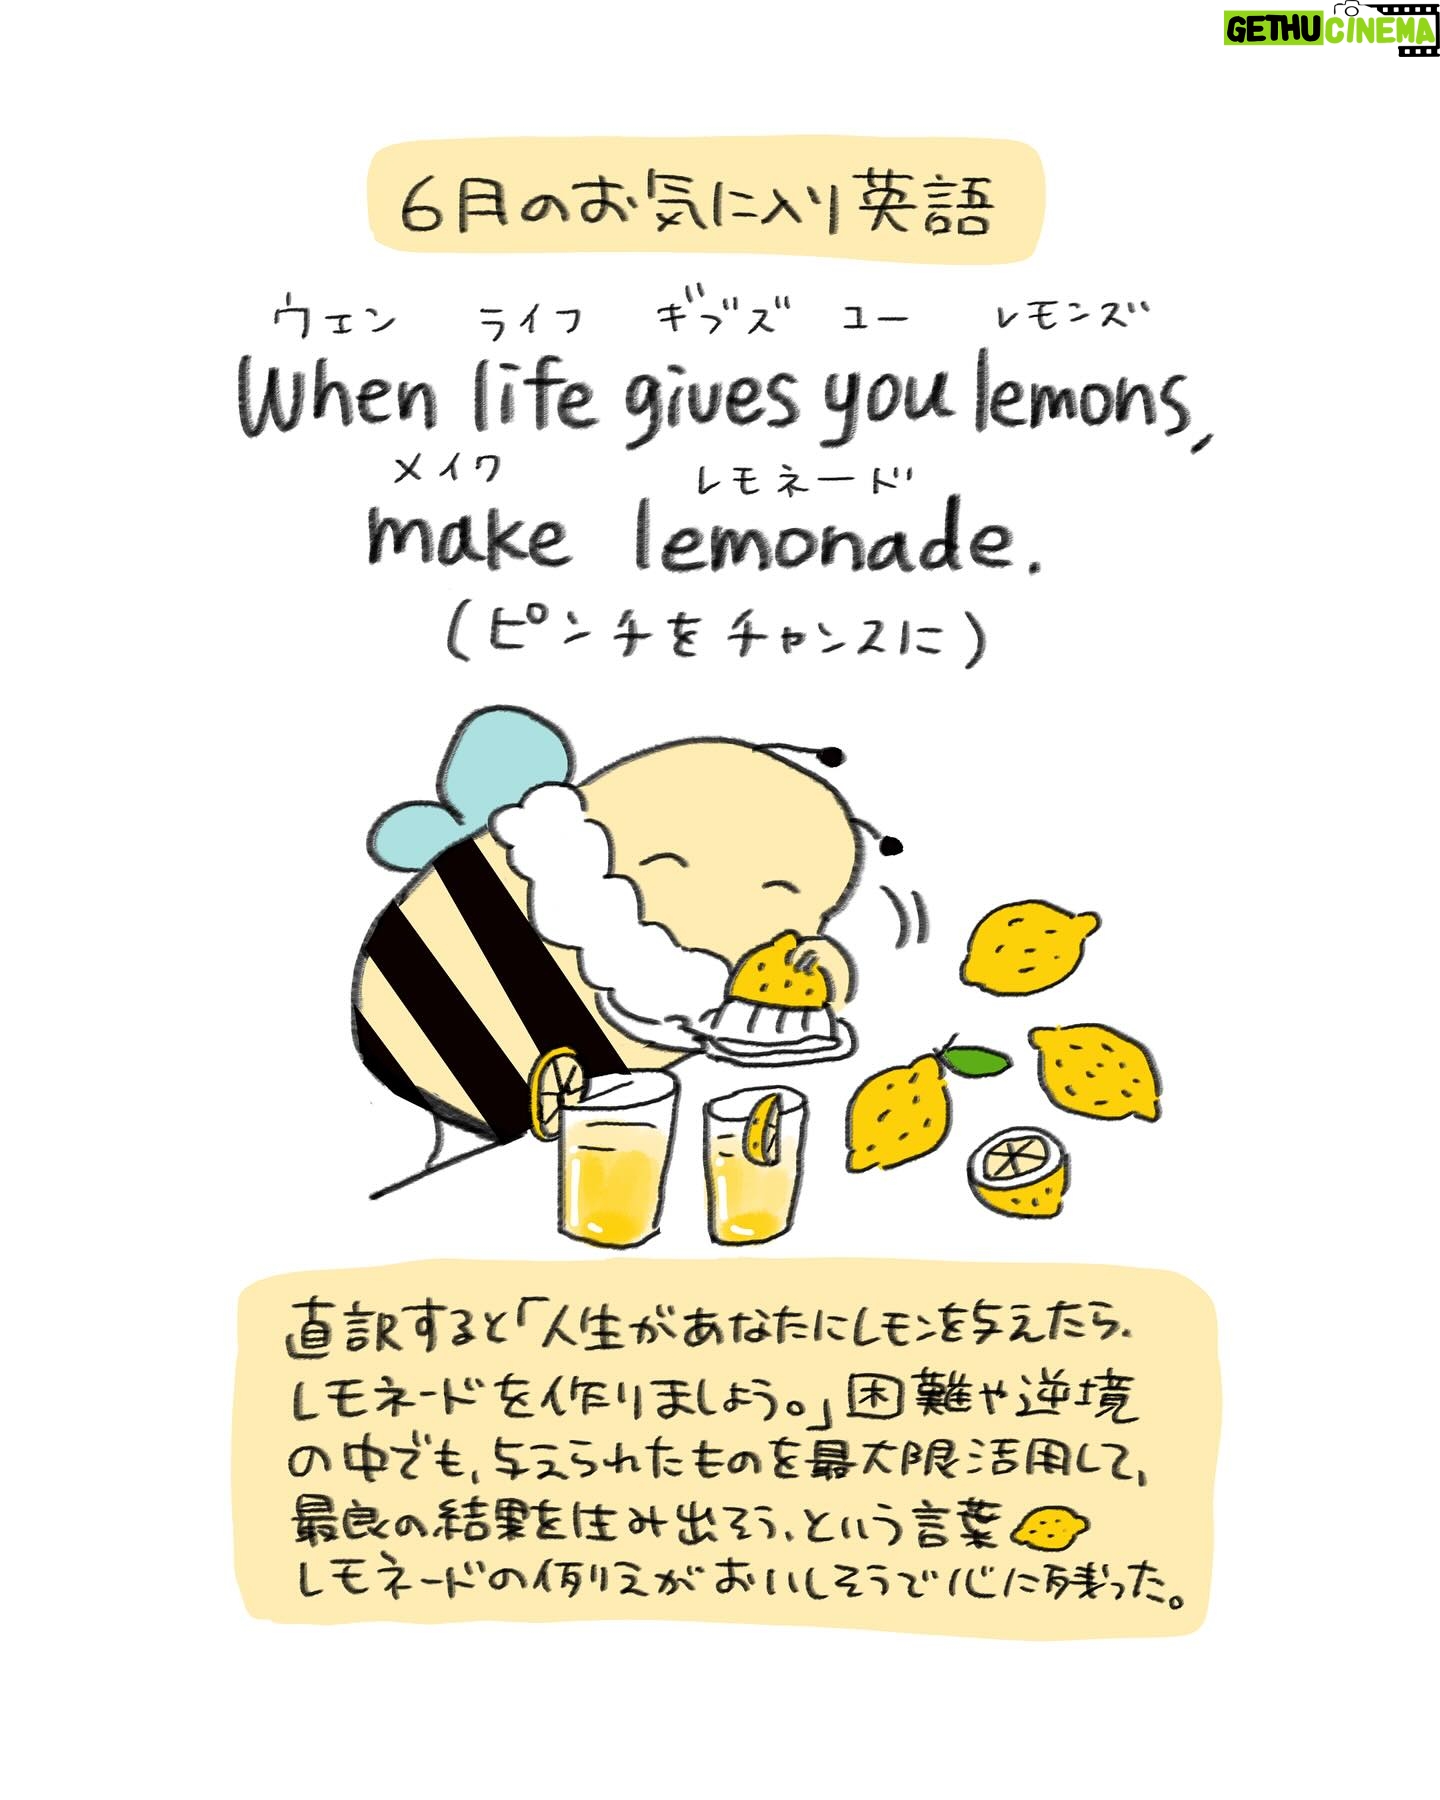 GETHUCINEMA
6月のお気に入り英語
ウェン ライフ ギブズ ユー レモンズ
When life gives you lemons,
メイク レモネード
make lemonade.
(ピンチをチャンスに)
直訳すると「人生があなたにレモンを与えたら、
レモネードを作りましょう。」困難や逆境
の中でも、与えられたものを最大限活用して、
最良の結果を生み出そう、という言葉
レモネードの例えがおいしそうで心に残った。